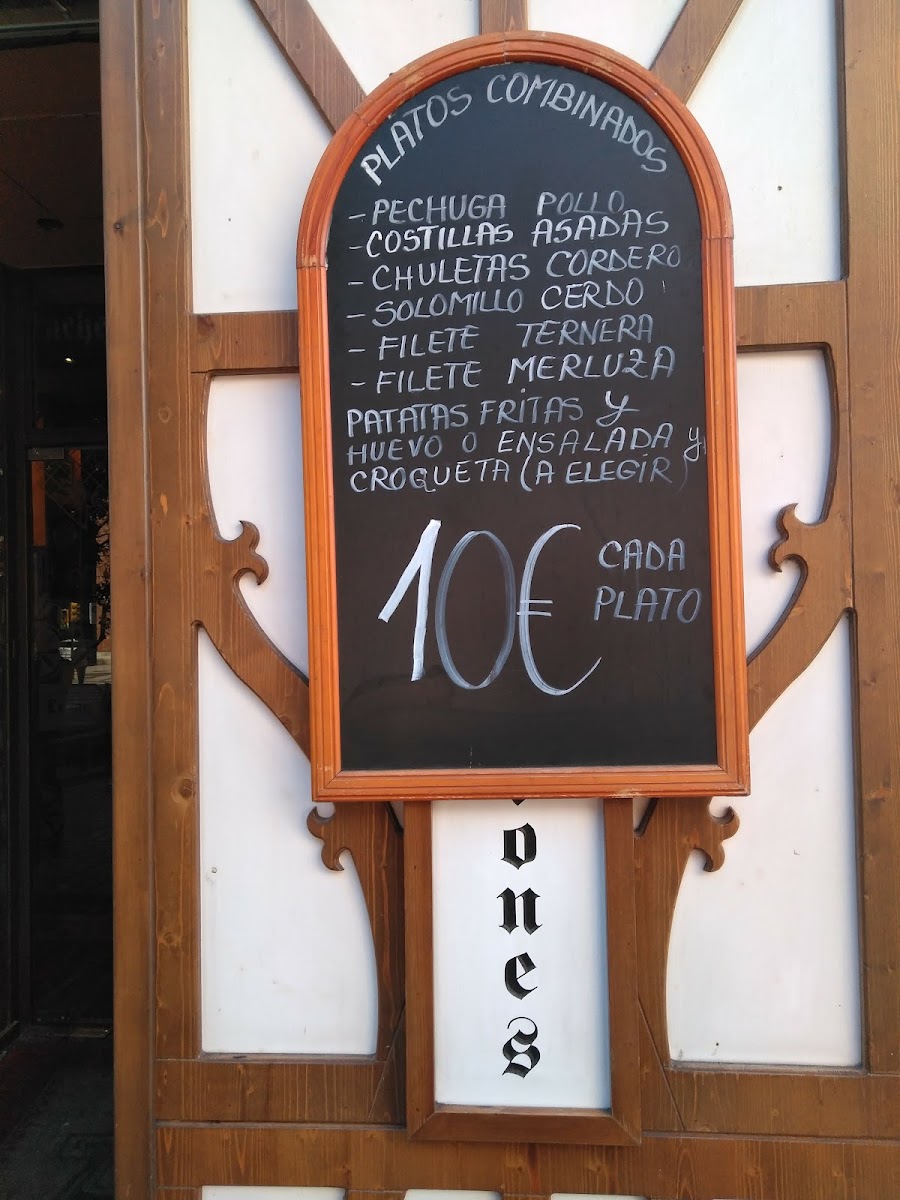 PLATOS COMBINADOS
- PECHUGA POLLO
- COSTILLAS ASADAS
- CHULETAS CORDERO
- SOLOMILLO CERDO
- FILETE TERNERA
- FILETE MERLUZA
PATATAS FRITAS Y
HUEVO O ENSALADA y
CROQUETA (A ELEGIR)
10€ CADA
PLATO
ones